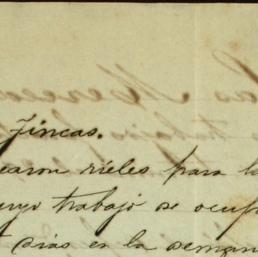 Fincas.
earon rieles para l
uyo trabajo se ocup
dias en la seman